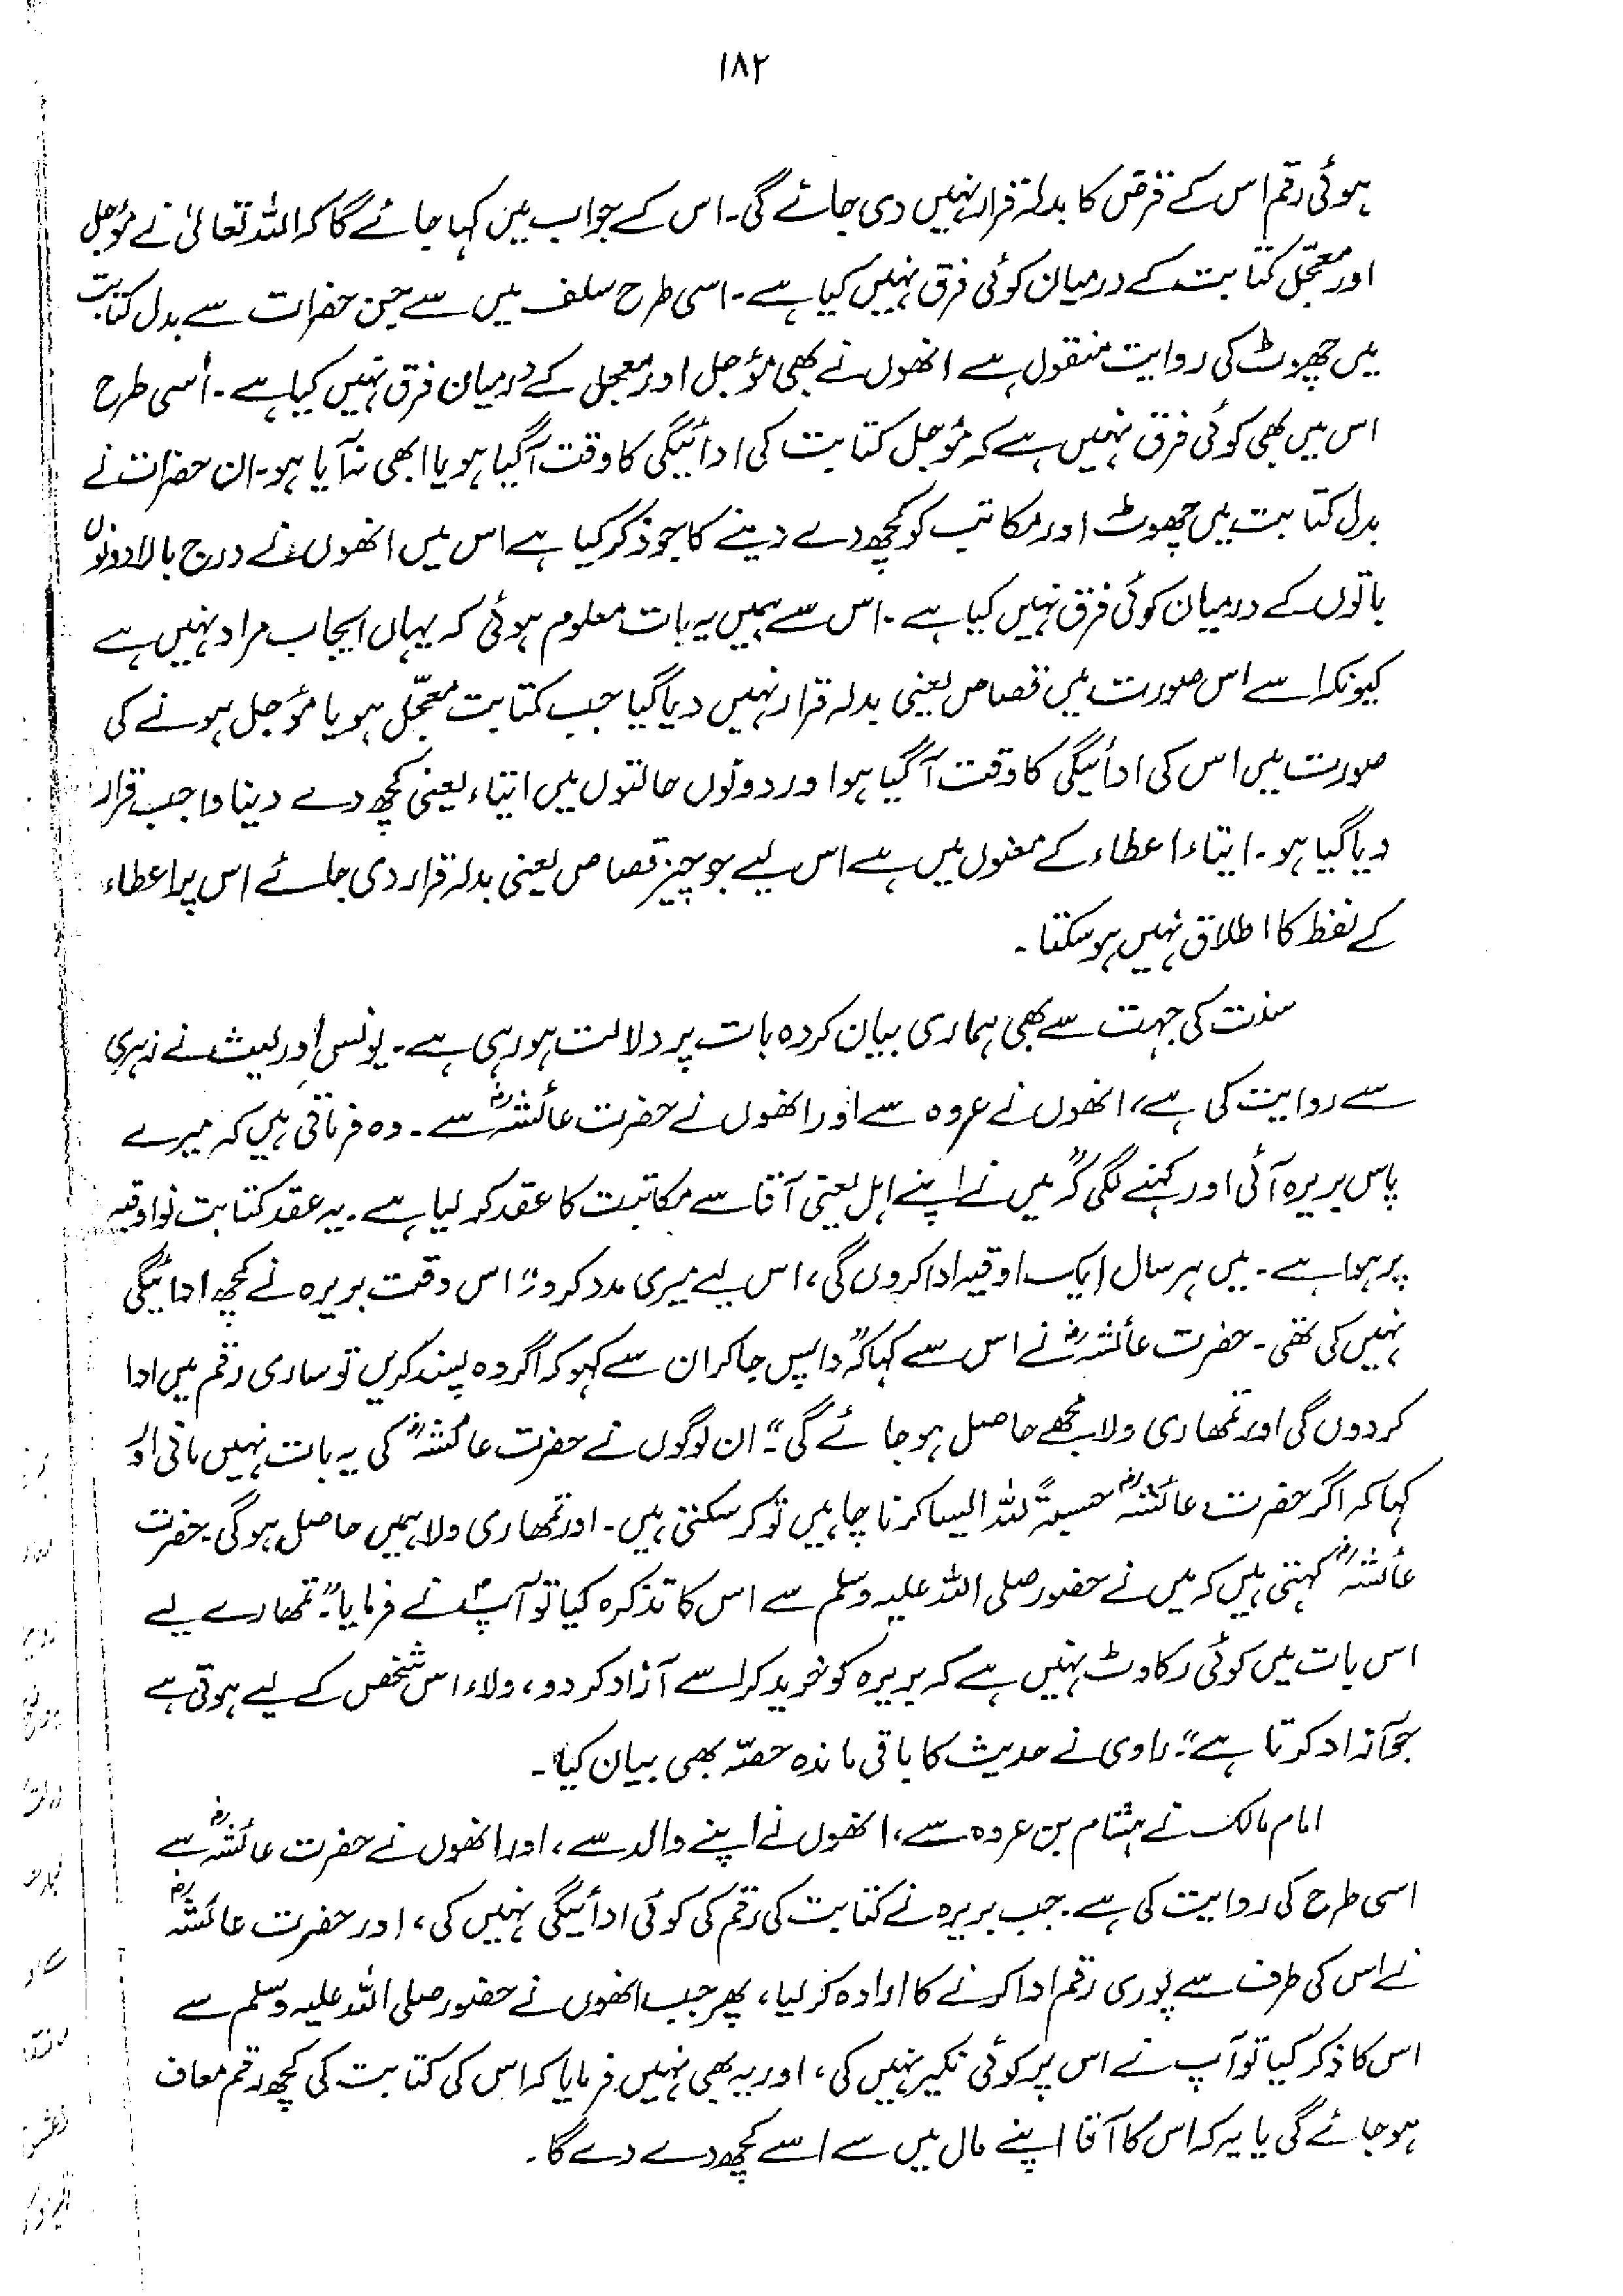 ۱۸۲
ہوئی رقم اس کے قرض کا بدلہ قرار نہیں دی جائے گی۔ اس کے جواب میں کہا جائے گا کہ اللہ تعالیٰ نے مؤجل
اور معجّل کتابت کے درمیان کوئی فرق نہیں کیا ہے۔ اسی طرح سلف میں سے جن حضرات سے بدل کتابت
میں چھوٹ کی روایت منقول ہے انھوں نے بھی مؤجل اور معجل کے درمیان فرق نہیں کیا ہے۔ اُسی طرح
اس میں بھی کوئی فرق نہیں ہے کہ مؤجل کتابت کی ادائیگی کا وقت آگیا ہو یا ابھی نہ آیا ہو۔ ان حضرات نے
بدل کتابت میں چھوٹ اور مکاتب کو کچھ دے دینے کا جو ذکر کیا ہے اس میں انھوں نے درج بالا دونوں
باتوں کے درمیان کوئی فرق نہیں کیا ہے۔ اس سے ہمیں یہ بات معلوم ہوئی کہ یہاں ایجاب مراد نہیں ہے
کیونکہ اسے اس صورت میں قصاص یعنی بدلہ قرار نہیں دیا گیا جب کتابت معجّل ہو یا مؤجل ہونے کی
صورت میں اس کی ادائیگی کا وقت آ گیا ہو اور دونوں حالتوں میں ایتاء یعنی کچھ دے دینا واجب قرار
دیا گیا ہو۔ ایتاء اعطاء کے معنوں میں ہے اس لیے جو چیز قصاص یعنی بدلہ قرار دی جائے اس پر اعطاء
کے لفظ کا اطلاق نہیں ہو سکتا۔
سنت کی جہت سے بھی ہماری بیان کردہ بات پر دلالت ہو رہی ہے۔ یونس اور لیث نے زہری
سے روایت کی ہے، انھوں نے عروہ سے اور انھوں نے حضرت عائشہؓ سے۔ وہ فرماتی ہیں کہ میرے
پاس بریرہ آئی اور کہنے لگی کہ "میں نے اپنے اہل یعنی آقا سے مکاتبت کا عقد کر لیا ہے۔ یہ عقد کتابت نو اوقیہ
پر ہوا ہے۔ میں ہر سال ایک اوقیہ ادا کروں گی، اس لیے میری مدد کرو"۔ اس وقت بریرہ نے کچھ ادائیگی
نہیں کی تھی۔ حضرت عائشہؓ نے اس سے کہا کہ "واپس جا کر ان سے کہو کہ اگر وہ پسند کریں تو ساری رقم میں ادا
کر دوں گی اور تمھاری ولا مجھے حاصل ہو جائے گی"۔ ان لوگوں نے حضرت عائشہؓ کی یہ بات نہیں مانی اور
کہا کہ اگر حضرت عائشہؓ حسبۃً للہ ایسا کرنا چاہیں تو کر سکتی ہیں۔ اور تمھاری ولا ہمیں حاصل ہوگی۔ حضرت
عائشہؓ کہتی ہیں کہ میں نے حضور صلی اللہ علیہ وسلم سے اس کا تذکرہ کیا تو آپؐ نے فرمایا "تمھارے لیے
اس بات میں کوئی رکاوٹ نہیں ہے کہ بریرہ کو خرید کر اسے آزاد کر دو، ولاء اس شخص کے لیے ہوتی ہے
جو آزاد کرتا ہے"۔ راوی نے حدیث کا باقی ماندہ حصّہ بھی بیان کیا۔
امام مالک نے ہشام بن عروہ سے، انھوں نے اپنے والد سے، اور انھوں نے حضرت عائشہؓ سے
اسی طرح کی روایت کی ہے۔ جب بریرہ نے کتابت کی رقم کی کوئی ادائیگی نہیں کی، اور حضرت عائشہؓ
نے اس کی طرف سے پوری رقم ادا کرنے کا ارادہ کر لیا، پھر جب انھوں نے حضور صلی اللہ علیہ وسلم سے
اس کا ذکر کیا تو آپ نے اس پر کوئی نکیر نہیں کی، اور یہ بھی نہیں فرمایا کہ اس کی کتابت کی کچھ رقم معاف
ہو جائے گی یا یہ کہ اس کا آقا اپنے مال میں سے اسے کچھ دے دے گا۔